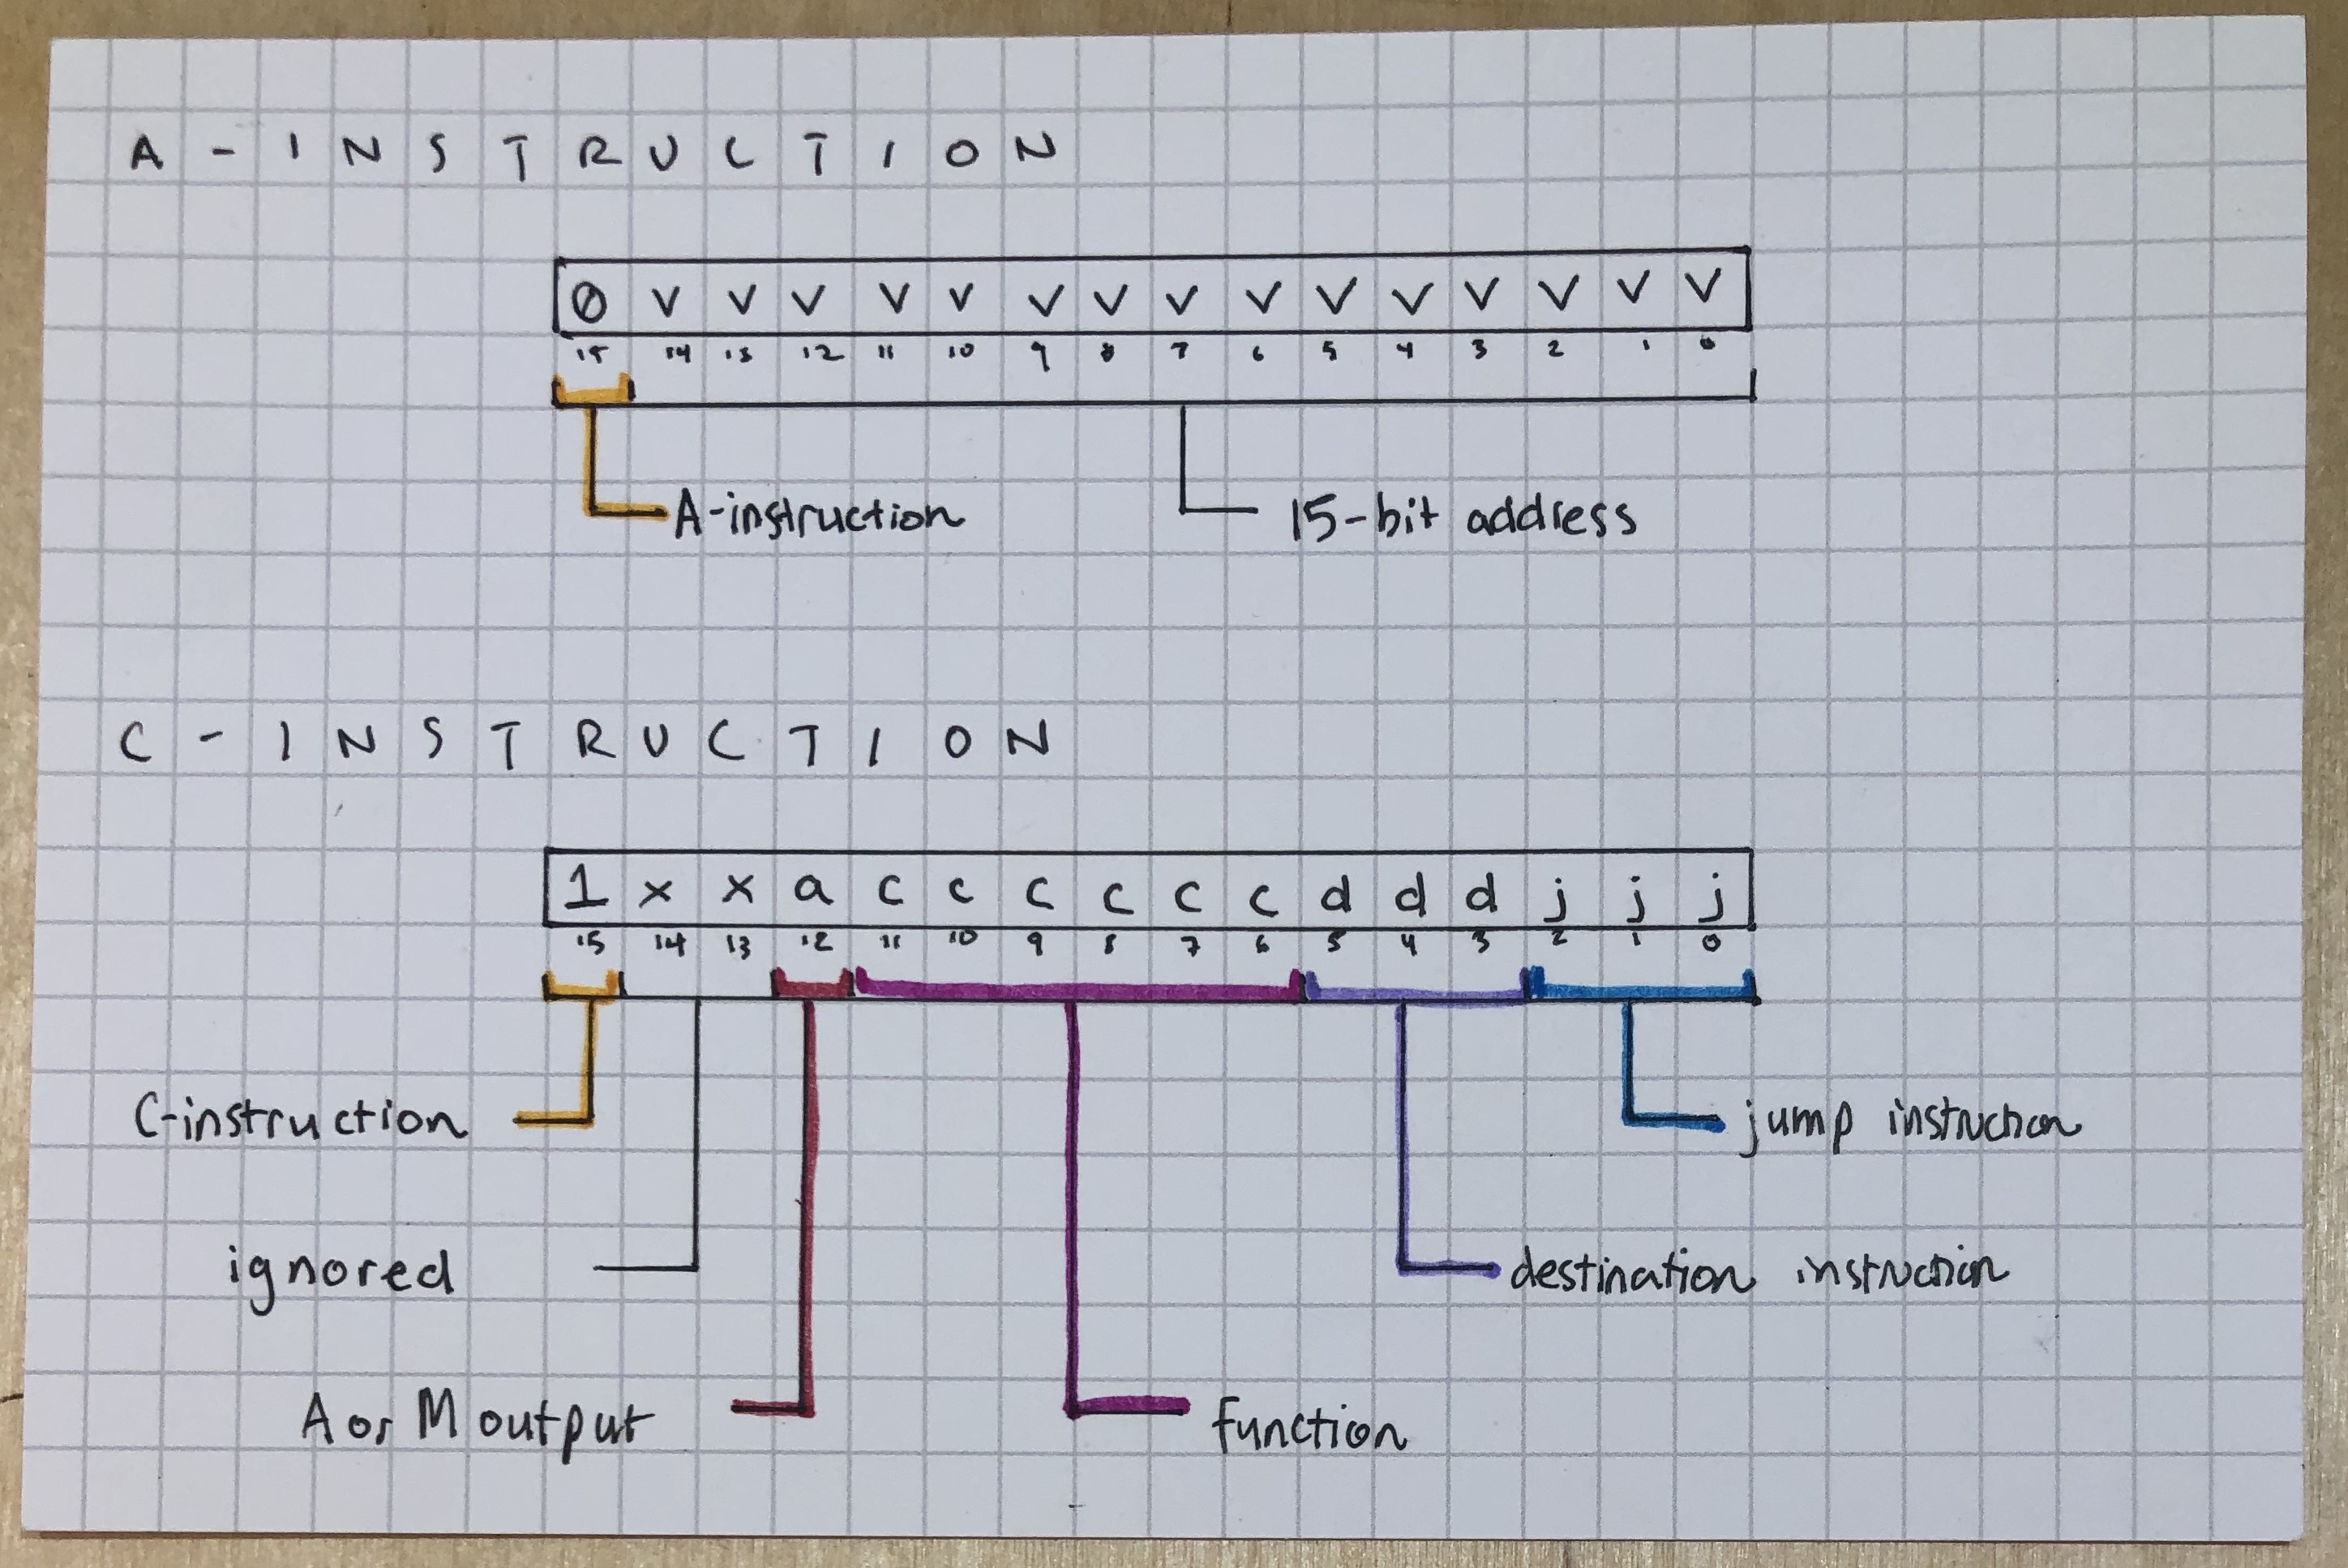 A-INSTRUCTION
0 v v v v v v v v v v v v v v v
15 14 13 12 11 10 9 8 7 6 5 4 3 2 1 0
A-instruction 15-bit address
C-INSTRUCTION
1 x x a c c c c c c d d d j j j
15 14 13 12 11 10 9 8 7 6 5 4 3 2 1 0
C-instruction jump instruction
ignored destination instruction
A or M output function